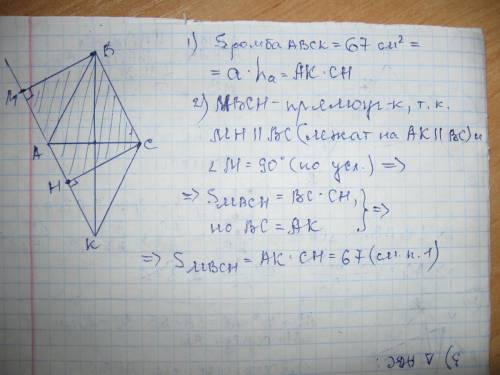 В
М
А
С
Н
К
1) Sромба ABCK = 67 см² =
= a · hₐ = AK · CH
2) MBCH – прямоуг-к, т. к.
MH || BC (лежат на AK || BC) и
∠M = 90° (по усл.) =>
=> SMBCH = BC · CH,
но BC = AK } =>
=> SMBCH = AK · CH = 67 (см. п. 1)
3) Δ ABC: